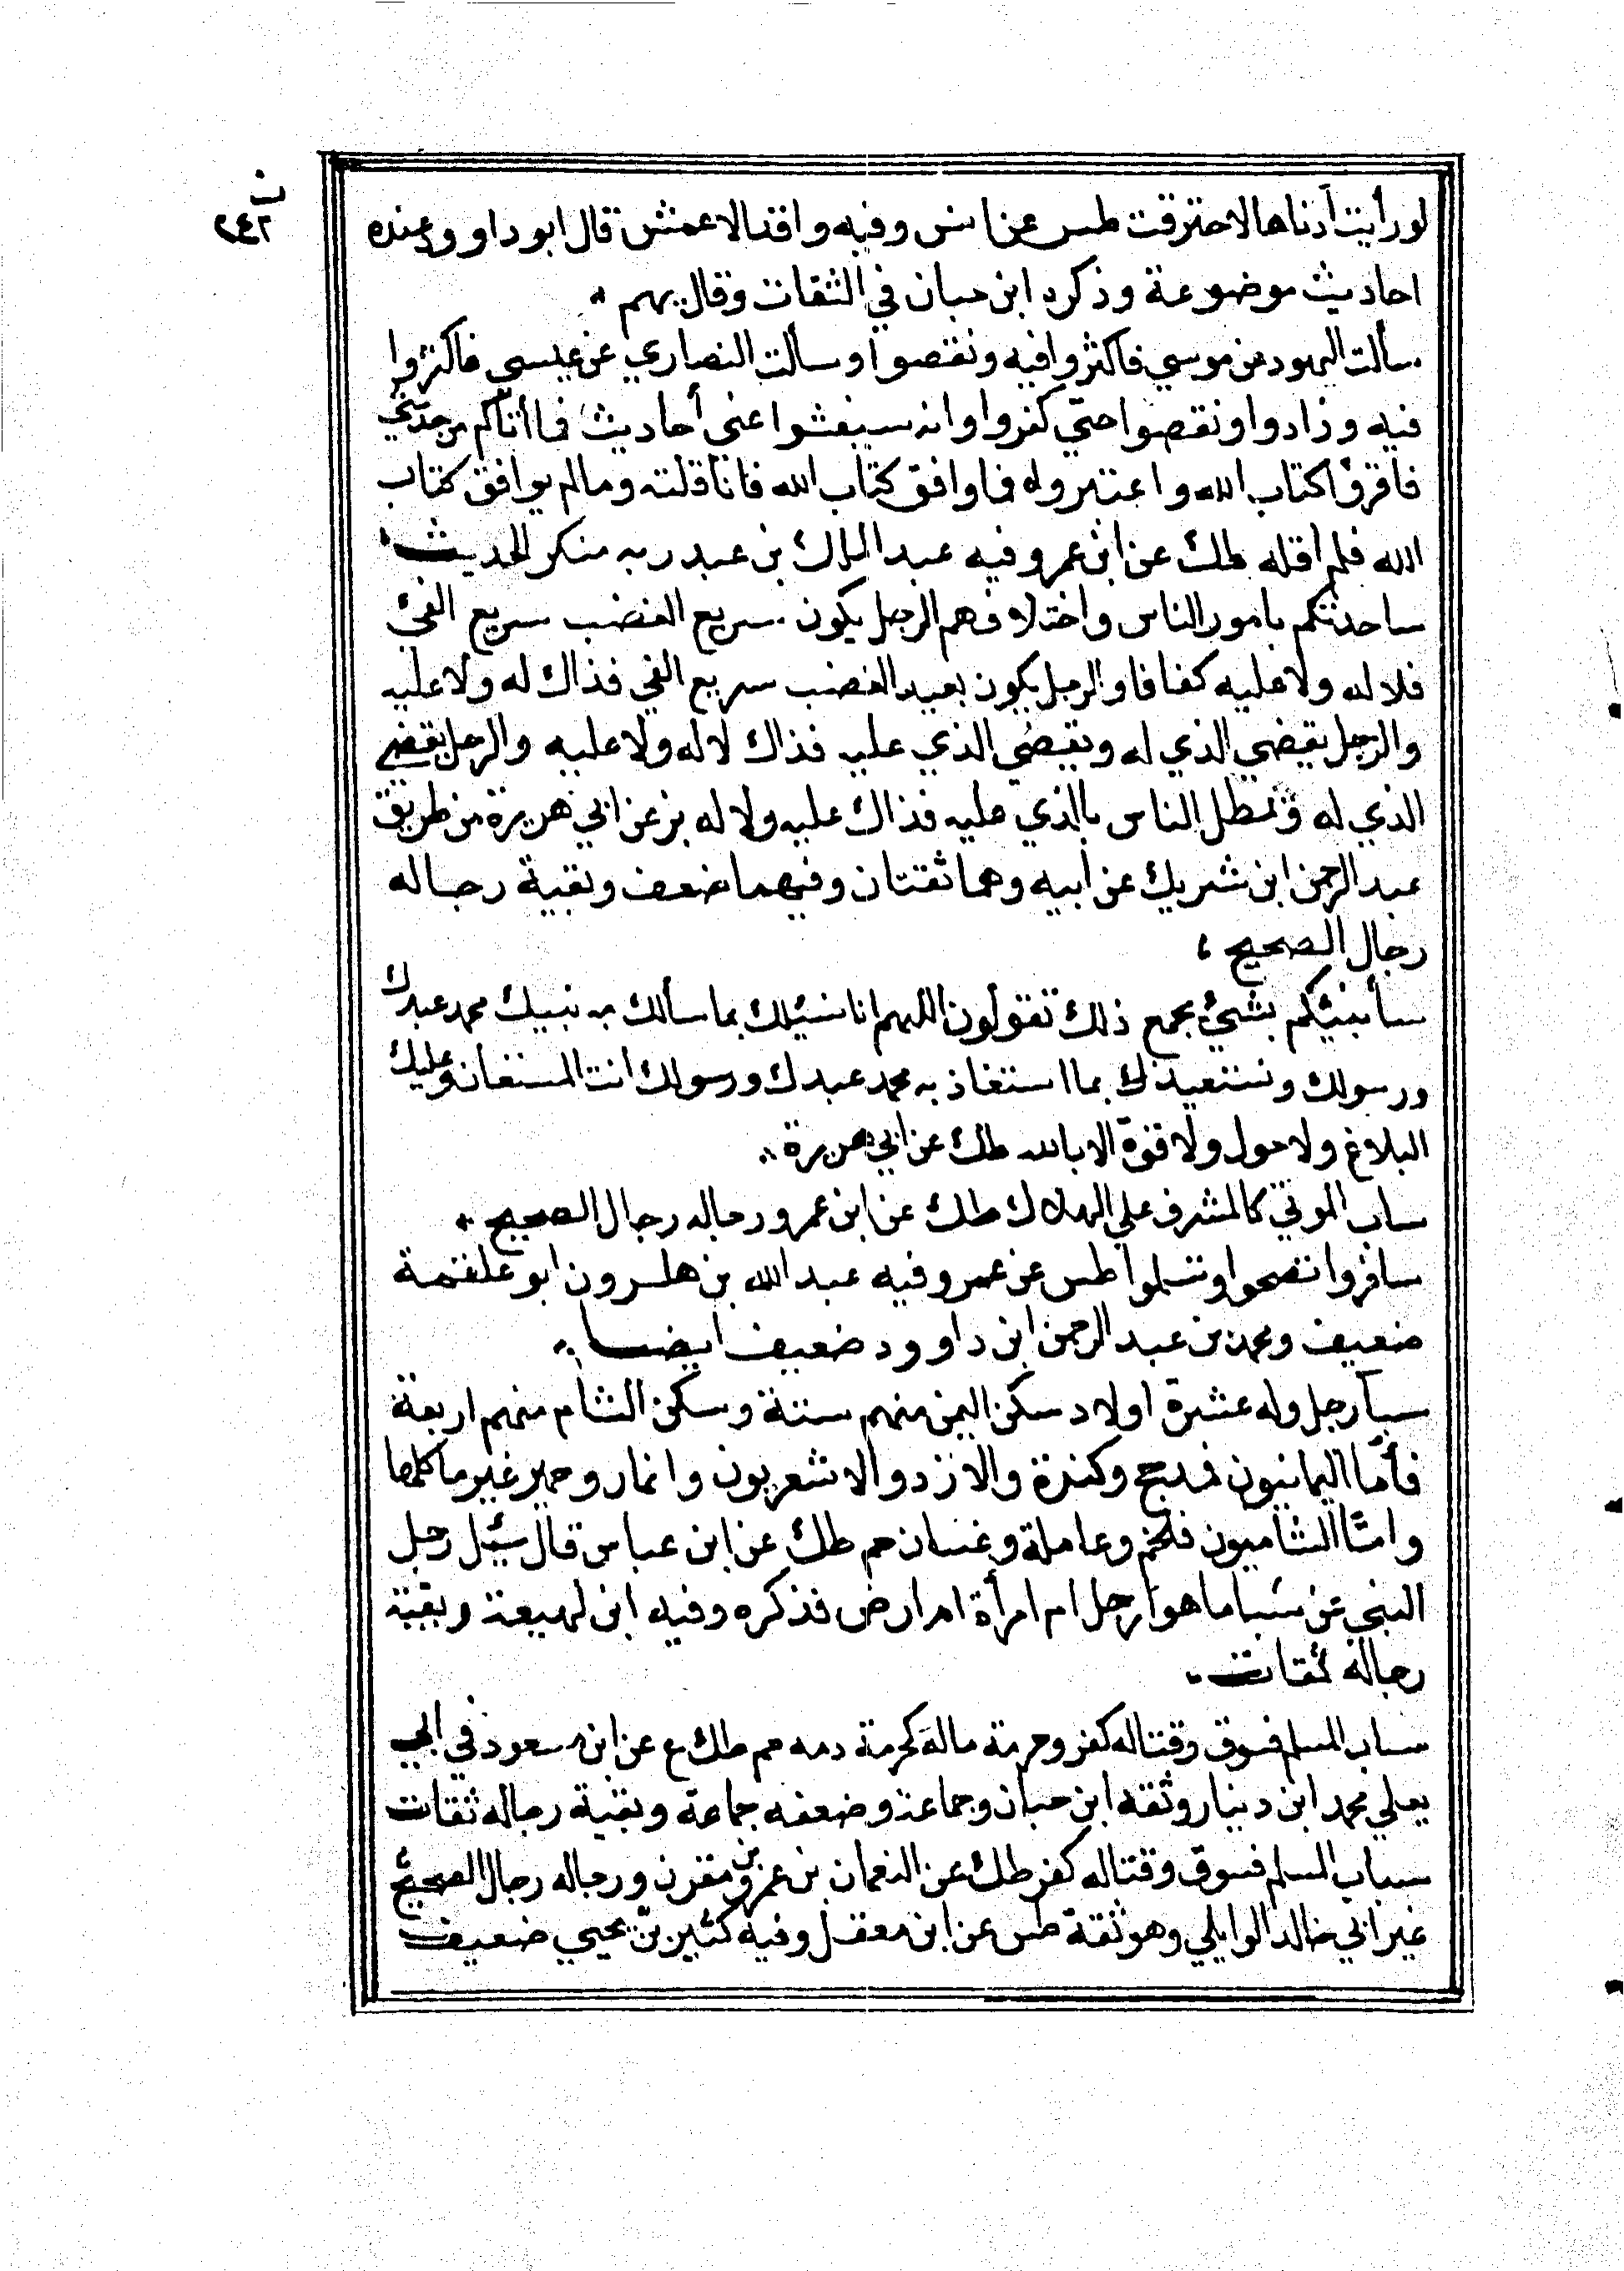 ت
٢٤٢
لو رأيت أدناها لاحترقت طس عن انس وفيه واقد الاعمش قال ابو داوود عنده
احاديث موضوعة وذكره ابن حبان في الثقات وقال يهم
سألت اليهود عن موسي فاكثروا فيه ونقصوا وسألت النصاري عن عيسي فاكثروا
فيه وزادوا ونقصوا حتي كفروا وانه سيفشوا عني أحاديث فما أتاكم من حديثي
فاقرؤا كتاب الله واعتبروه فما وافق كتاب الله فانا قلته ومالم يوافق كتاب
الله فلم اقله طك عن ابن عمر وفيه عبد الملك بن عبد ربه منكر الحديث
ساحدثكم بامور الناس واختلافهم الرجل يكون سريع الغضب سريع الفئ
فلا له ولا عليه كفافا والرجل يكون بعيد الغضب سريع الفي فذاك له ولا عليه
والرجل يقضي الذي له ويقضي الذي عليه فذاك لا له ولا عليه والرجل يقضي
الذي له ويمطل الناس بالذي عليه فذاك عليه ولا له بز عن ابي هريرة من طريق
عبد الرحمن ابن شريك عن ابيه وهما ثقتان وفيهما ضعف وبقية رجاله
رجال الصحيح
سأنبئكم بشئ يجمع ذلك تقولون اللهم انا نسئلك بما سألك به نبيك محمد عبدك
ورسولك ونستعيذك بما استعاذ به محمد عبدك ورسولك انت المستعان وعليك
البلاغ ولا حول ولا قوة الا بالله طك عن ابي هريرة
ساب الموتي كالمشرف علي الهلاك طك عن ابن عمرو رجاله رجال الصحيح
سافروا تصحوا وتسلموا طس عن عمر وفيه عبد الله بن هارون ابو علقمة
ضعيف ومحمد بن عبد الرحمن ابن داوود ضعيف ايضا
سبأ رجل وله عشرة اولاد سكن اليمن منهم ستة وسكن الشام منهم اربعة
فأما اليمانيون فمذحج وكندة والازد والاشعريون وانمار وحمير غير ما كلها
وامّا الشاميون فلخم وعاملة وغسان حم طك عن ابن عباس قال سئل رجل
النبي عن سبا ما هو أرجل ام امرأة ام ارض فذكره وفيه ابن لهيعة وبقية
رجاله ثقات
ساب المسلم فسوق وقتاله كفر وحرمة ماله كحرمة دمه حم طك ع عن ابن مسعود في ابي
يعلي محمد ابن دينار وثقه ابن حبان وجماعة وضعفه جماعة وبقية رجاله ثقات
سباب المسلم فسوق وقتاله كفر طك عن النعمان بن عمرو بن مقرن ورجاله رجال الصحيح
غير ابي خالد الوابلي وهو ثقة طس عن ابن معقل وفيه كثير بن يحيي ضعيف